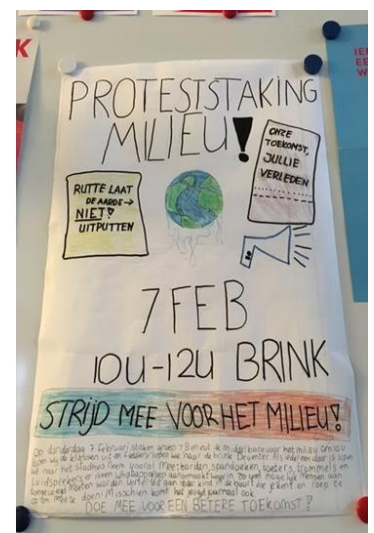 PROTESTSTAKING
MILIEU!
RUTTE LAAT
DE AARDE →
NIET!
UITPUTTEN
ONZE
TOEKOMST,
JULLIE
VERLEDEN
7 FEB
10U-12U BRINK
STRIJD MEE VOOR HET MILIEU!
Op donderdag 7 februari staken groep 7 8 en de voor het milieu om 10u
lopen wij de klaslokalen uit en naar de brink Deventer. Als iedereen daar is lopen
we naar het stadhuis neem vooral mee: borden, spandoeken, toeters, trommels en
Luidsprekers er is een whatsappgroep aangemaakt waar in zo veel mogelijk mensen aan
toegevoegd moeten worden. en roep ze
op om mee te doen! Misschien komt het jeugd journaal ook.
DOE MEE VOOR EEN BETERE TOEKOMST!